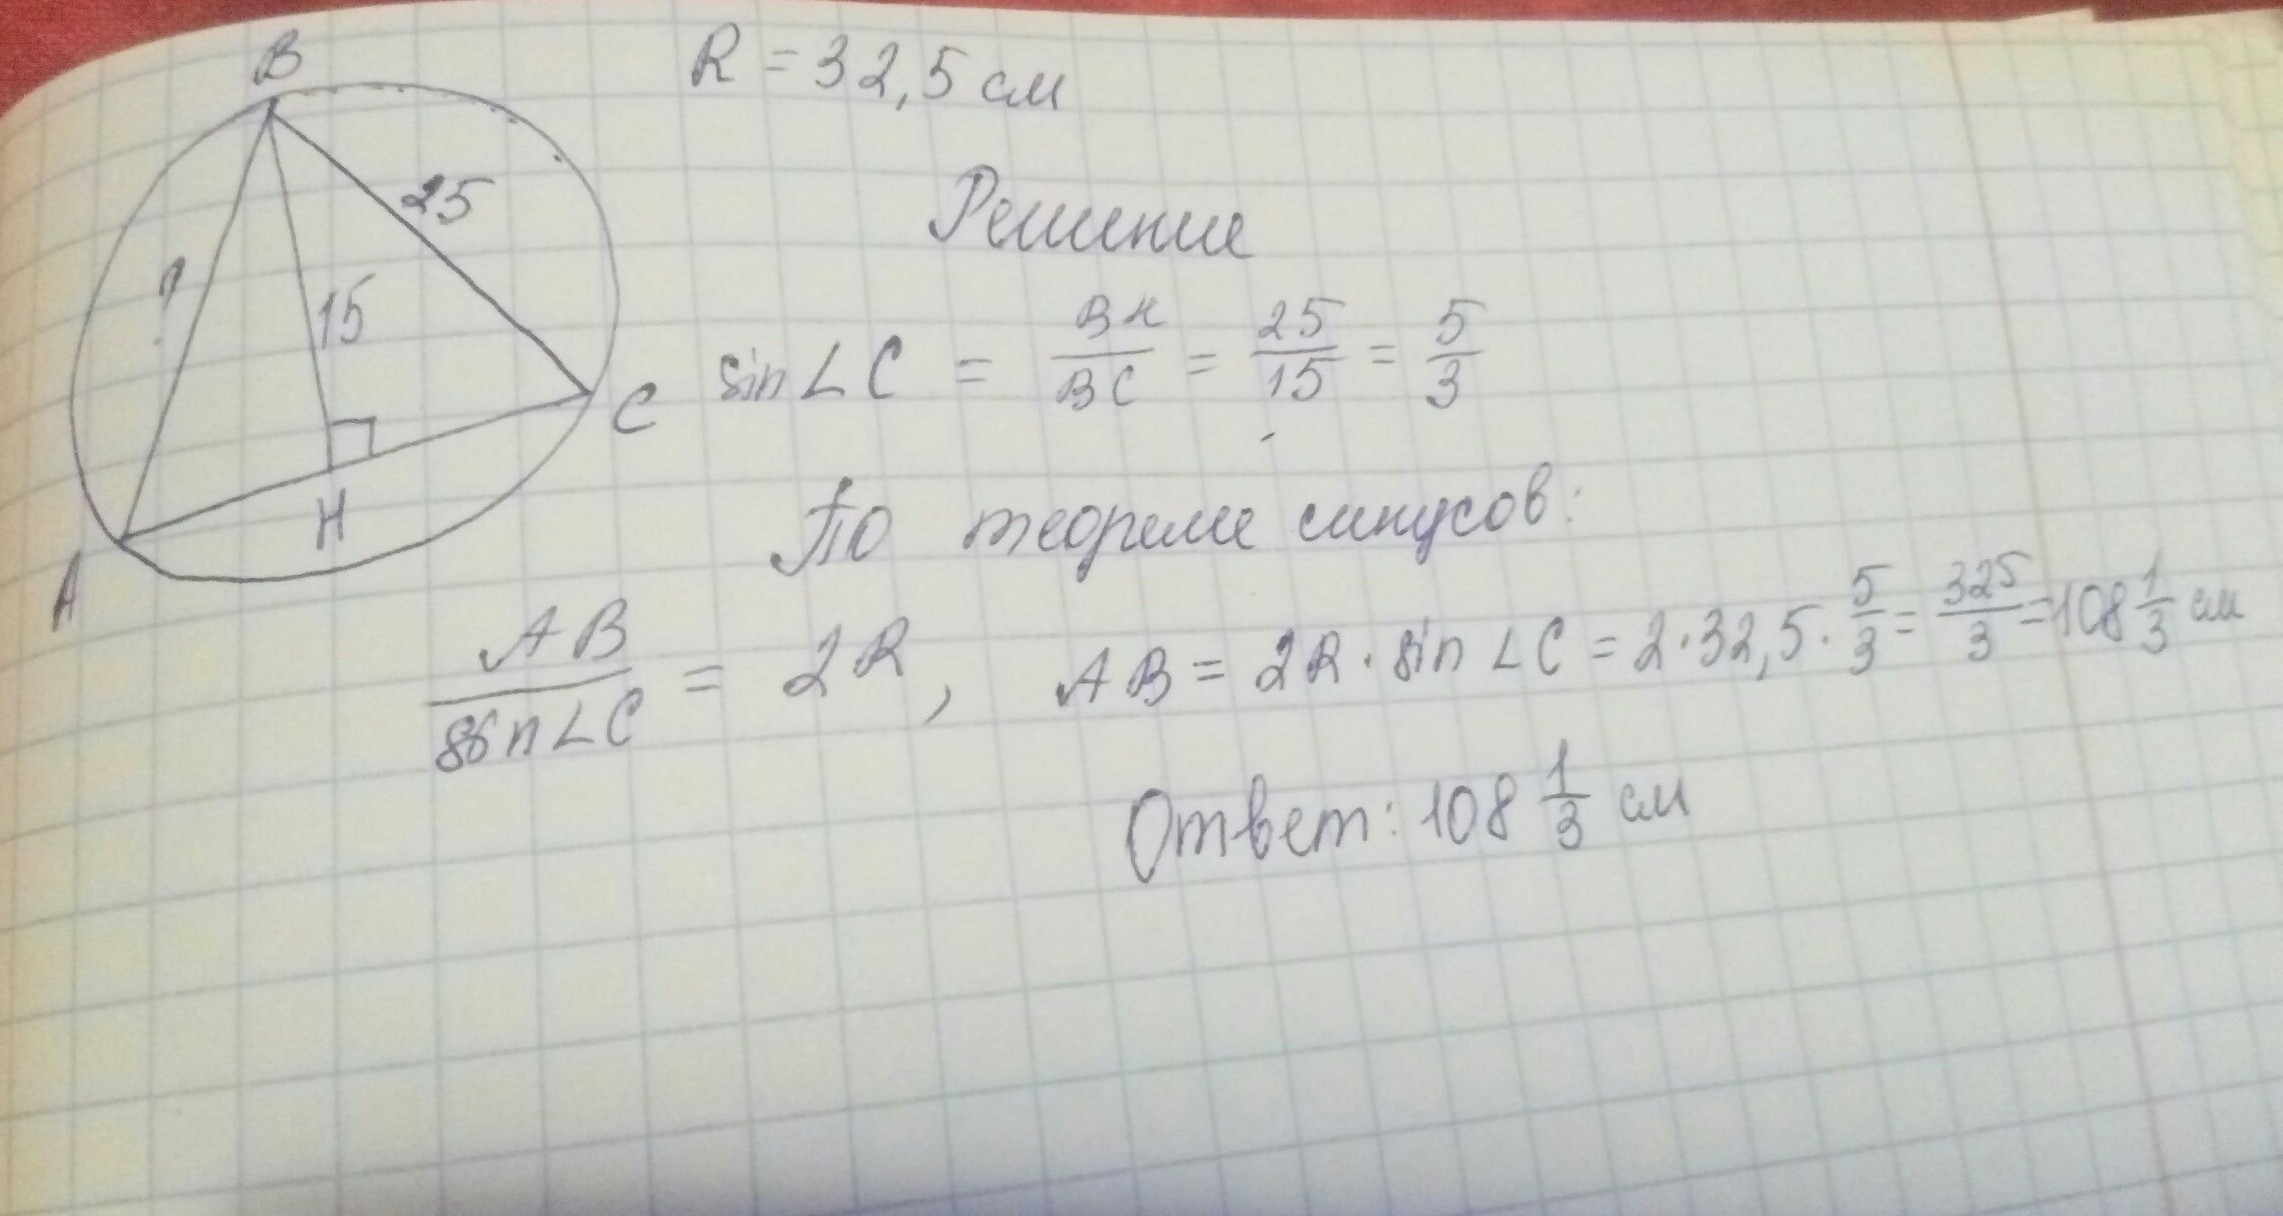 B
R = 32,5 см
25
Решение
?
15
sin∠C = BH/BC = 25/15 = 5/3
C
H
По теореме синусов:
A
AB/sin∠C = 2R, AB = 2R · sin∠C = 2·32,5·5/3 = 325/3 = 108 1/3 см
Ответ: 108 1/3 см